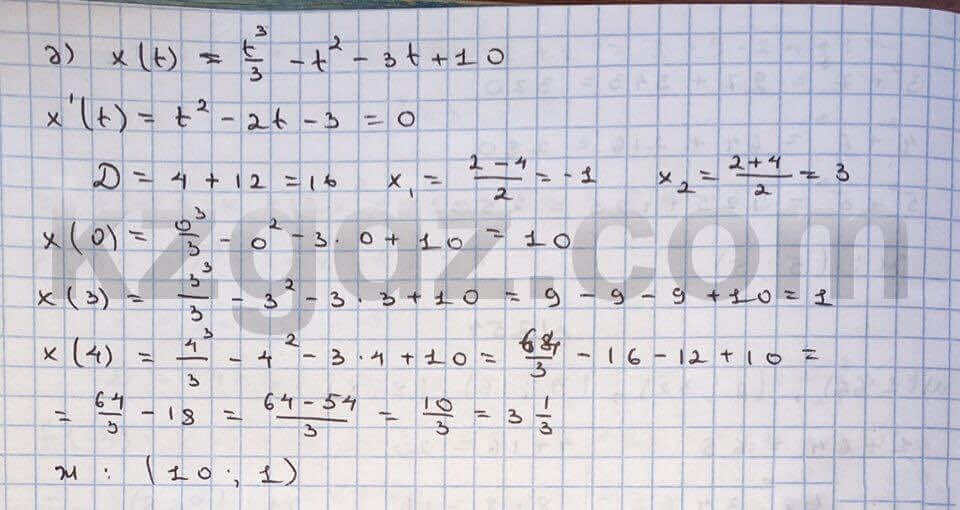 д) x(t) = t³/3 - t² - 3t + 10
x'(t) = t² - 2t - 3 = 0
D = 4 + 12 = 16 x₁ = (2-4)/2 = -1 x₂ = (2+4)/2 = 3
x(0) = 0³/3 - 0² - 3·0 + 10 = 10
x(3) = 3³/3 - 3² - 3·3 + 10 = 9 - 9 - 9 + 10 = 1
x(4) = 4³/3 - 4² - 3·4 + 10 = 64/3 - 16 - 12 + 10 =
= 64/3 - 18 = (64-54)/3 = 10/3 = 3 1/3
: (10; 1)
kzgdz.com